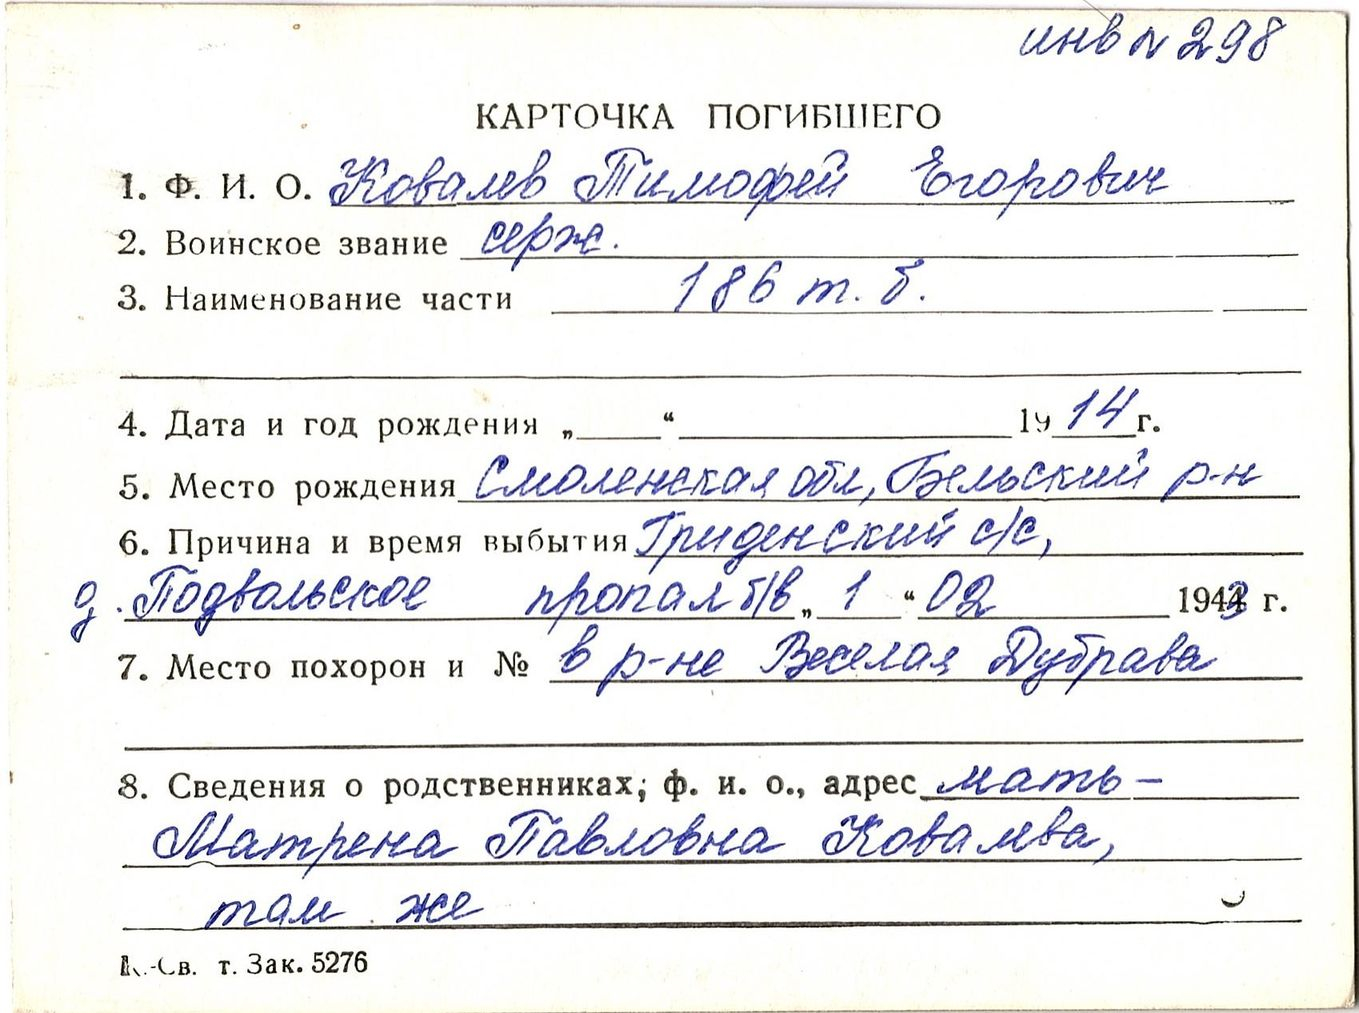 инв № 298
КАРТОЧКА ПОГИБШЕГО
1. Ф. И. О. Ковалев Тимофей Егорович
2. Воинское звание серж.
3. Наименование части 186 т. б.
4. Дата и год рождения „ “ 1914 г.
5. Место рождения Смоленская обл, Бельский р-н
6. Причина и время выбытия Гриденский с/с,
д. Подвольское пропал б/в „ 1 “ 02 1943 г.
7. Место похорон и № в р-не Веселая Дубрава
8. Сведения о родственниках; ф. и. о., адрес мать –
Матрена Павловна Ковалева,
там же
К.-Св. т. Зак. 5276